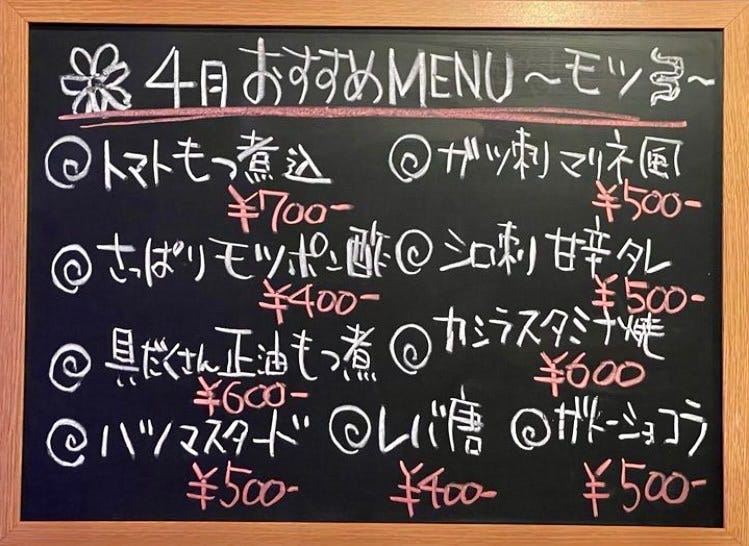 4月おすすめMENU～モツ～
トマトもつ煮込
¥700-
ガツ刺マリネ風
¥500-
さっぱりモツポン酢
¥400-
シロ刺甘辛タレ
¥500-
具だくさん正油もつ煮
¥600-
カシラスタミナ焼
¥600
ハツマスタード
¥500-
レバ唐
¥400-
ガトーショコラ
¥500-